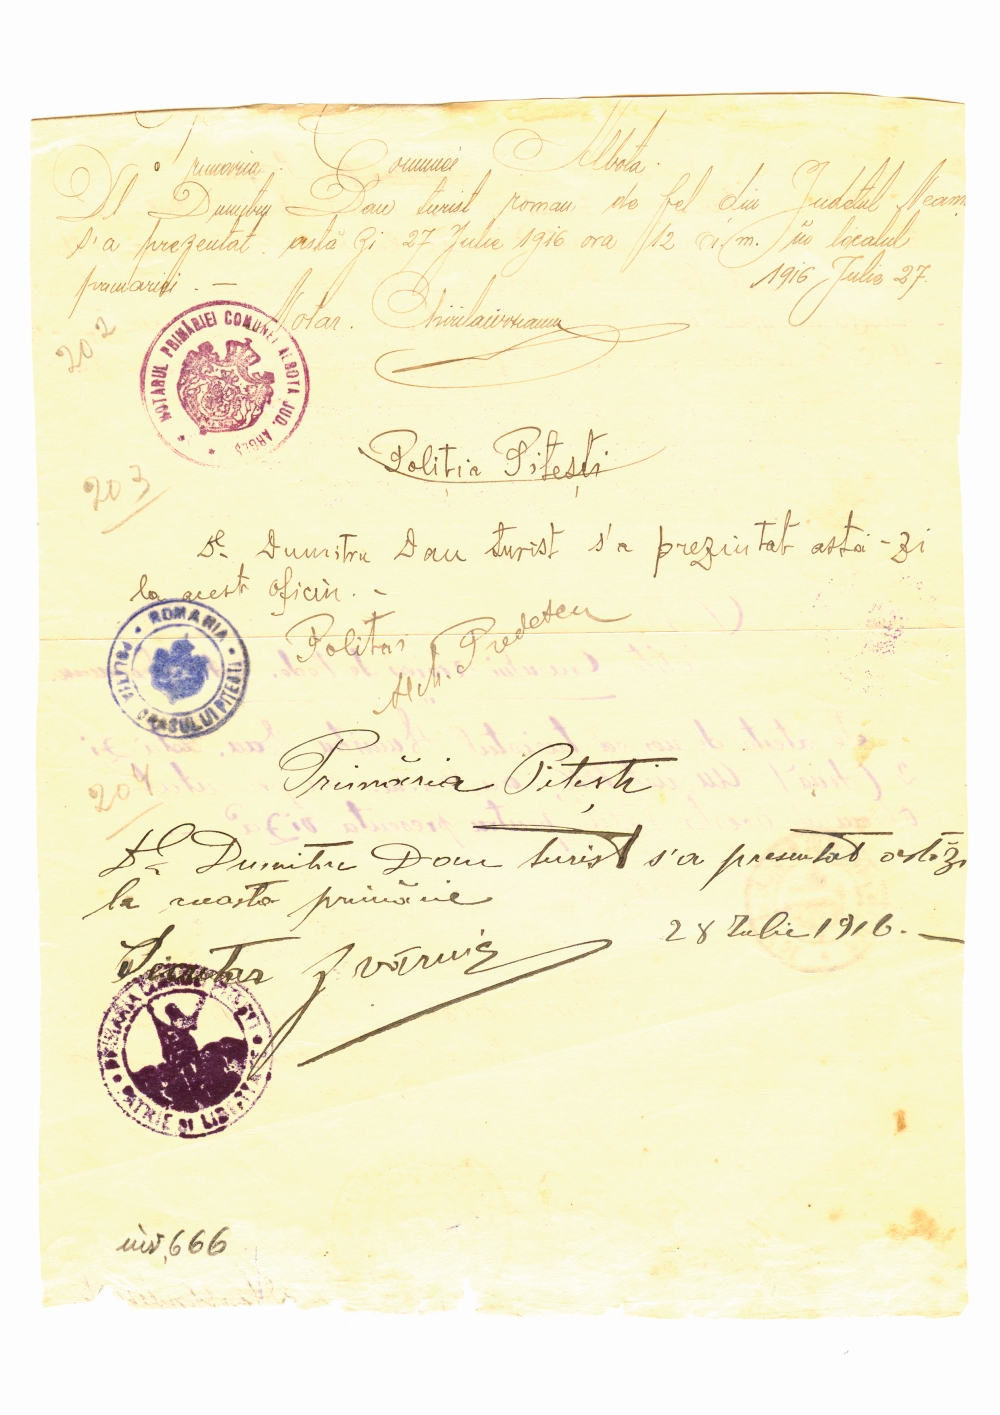 Primaria Comunei Albota.
Dl Dumitru Dan turist roman de fel din Judetul Neamt
s'a prezentat astă zi 27 Julie 1916 ora 12 a.m. in localul
primariei. —
1916 Julie 27.
Notar.
202
NOTARUL PRIMĂRIEI COMUNEI ALBOTA JUD. ARGEȘ
Poliția Pitești
203
Dl. Dumitru Dan turist s'a prezintat astă-zi
la acest oficiu. –
Politai Predescu
ROMANIA
POLIȚIA ORAȘULUI PITEȘTI
Primăria Pitești
204
Dl Dumitru Dan turist s'a presentat astăzi
la aceasta primărie
28 Iulie 1916. —
Secretar
PATRIE ȘI LIBERTATE
inv, 666